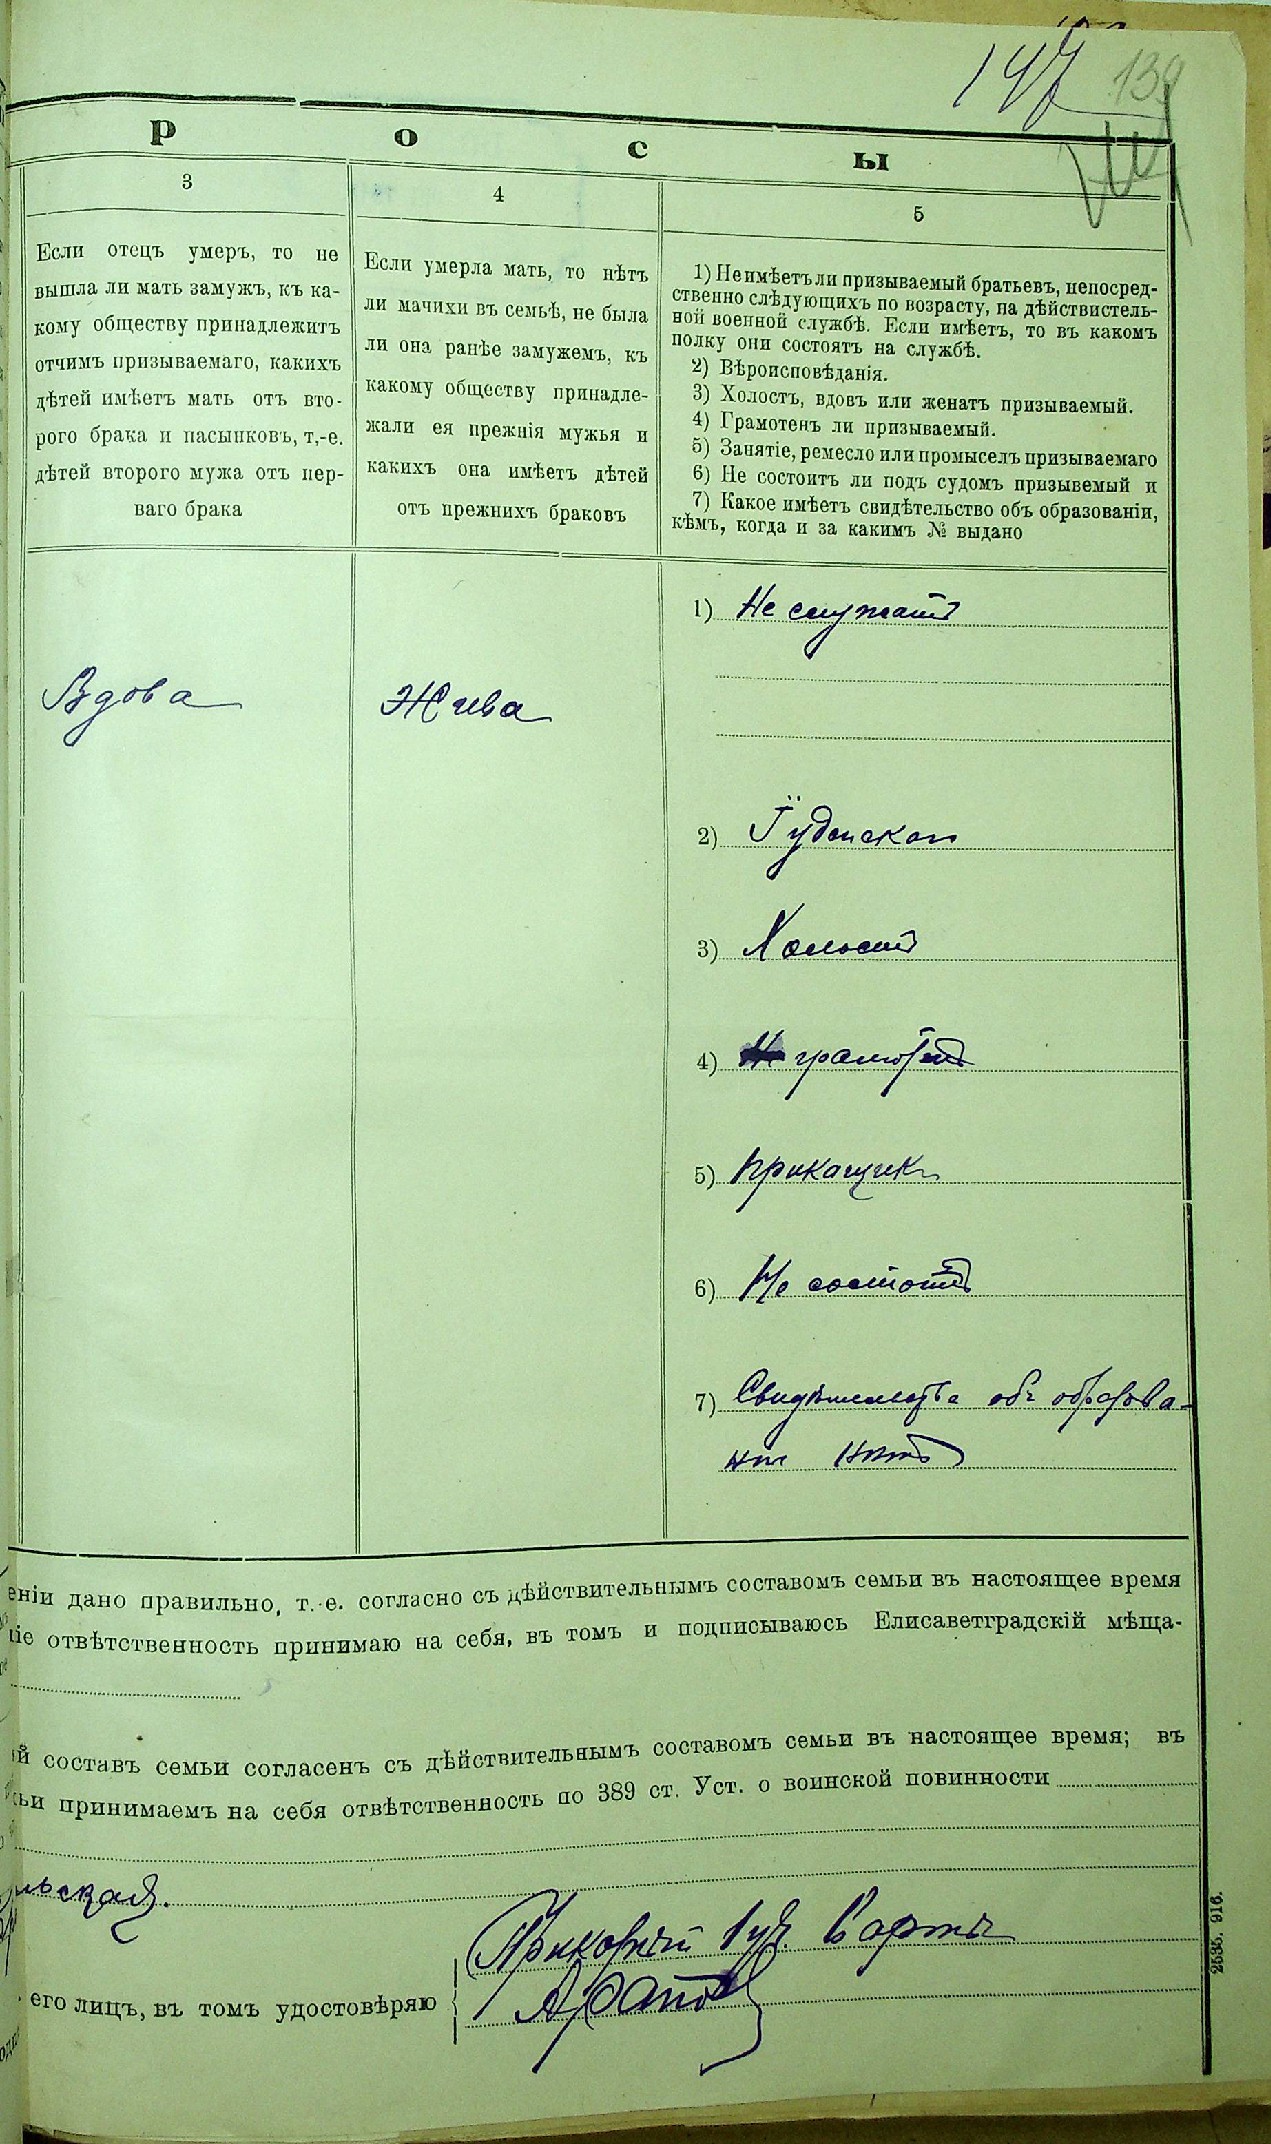 147 139
Р О С Ы
3
4
5
Если отецъ умеръ, то не
вышла ли мать замужъ, къ ка-
кому обществу принадлежитъ
отчимъ призываемаго, какихъ
дѣтей имѣетъ мать отъ вто-
рого брака и пасынковъ, т.-е.
дѣтей второго мужа отъ пер-
ваго брака
Если умерла мать, то нѣтъ
ли мачихи въ семьѣ, не была
ли она ранѣе замужемъ, къ
какому обществу принадле-
жали ея прежнія мужья и
какихъ она имѣетъ дѣтей
отъ прежнихъ браковъ
1) Неимѣетъли призываемый братьевъ, непосред-
ственно слѣдующихъ по возрасту, на дѣйствитель-
ной военной службѣ. Если имѣетъ, то въ какомъ
полку они состоятъ на службѣ.
2) Вѣроисповѣданія.
3) Холостъ, вдовъ или женатъ призываемый.
4) Грамотенъ ли призываемый.
5) Занятіе, ремесло или промыселъ призываемаго
6) Не состоитъ ли подъ судомъ призывемый и
7) Какое имѣетъ свидѣтельство объ образованіи,
кѣмъ, когда и за какимъ № выдано
Вдова
Жива
1) Не служатъ
2) Іудейскаго
3) Холостъ
4) грамотенъ
5) прикащикъ
6) Не состоитъ
7) Свидѣтельства объ образова-
ніи нѣтъ
еніи дано правильно, т.-е. согласно съ дѣйствительнымъ составомъ семьи въ настоящее время
ніе отвѣтственность принимаю на себя, въ томъ и подписываюсь Елисаветградскій мѣща-
ой составъ семьи согласенъ съ дѣйствительнымъ составомъ семьи въ настоящее время; въ
сьи принимаемъ на себя отвѣтственность по 389 ст. Уст. о воинской повинности
льская.
его лицъ, въ томъ удостовѣряю
2535. 916.